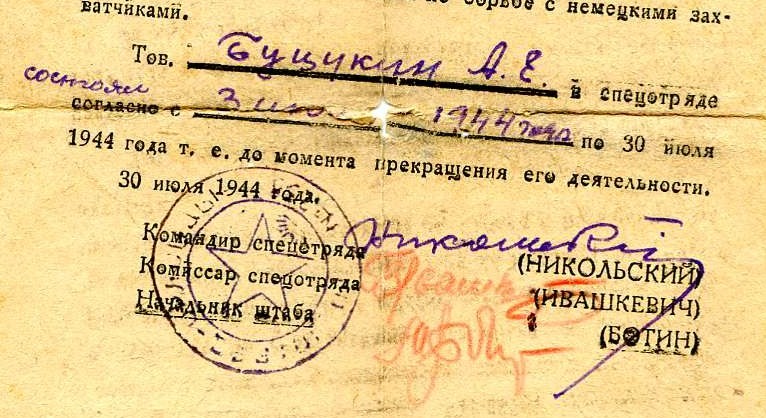 борьбе с немецкими зах-
ватчиками.
Тов. Буцукин А. Е. в спецотряде
состоял
согласно с 3 1944 года по 30 июля
1944 года т. е. до момента прекращения его деятельности.
30 июля 1944 года.
Командир спецотряда
(НИКОЛЬСКИЙ)
Комиссар спецотряда
(ИВАШКЕВИЧ)
Начальник штаба
(БОТИН)